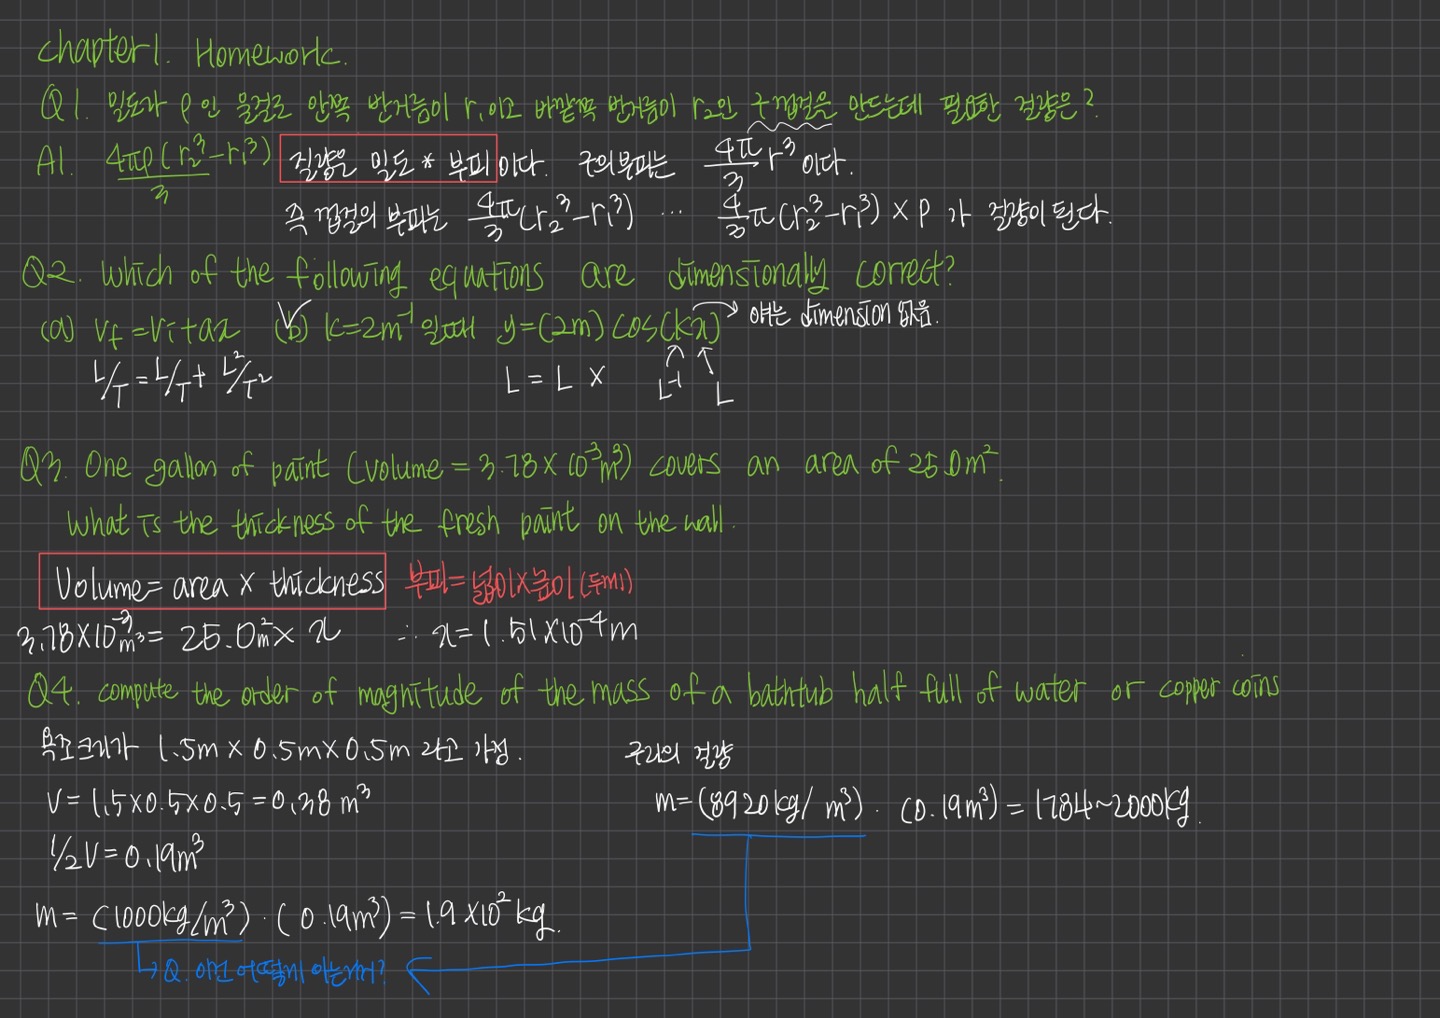 Chapter 1. Homework.
Q1. 밀도가 ρ인 물질로 안쪽 반지름이 r₁이고 바깥쪽 반지름이 r₂인 구껍질을 만드는데 필요한 질량은?
A1. 4πρ(r₂³-r₁³)/3 질량은 밀도 * 부피이다. 구의 부피는 4π/3 r³ 이다.
즉 껍질의 부피는 4π/3 (r₂³-r₁³) ... 4/3 π(r₂³-r₁³) × ρ 가 질량이 된다.
Q2. Which of the following equations are dimensionally correct?
(a) Vf = Vi + ax (b) k=2m⁻¹ 일때 y=(2m) cos(kx) → 얘는 dimension 없음.
L/T = L/T + L²/T² L = L × L⁻¹ L
Q3. One gallon of paint (volume = 3.78 × 10⁻³m³) covers an area of 25.0m².
What is the thickness of the fresh paint on the wall.
Volume = area × thickness 부피=넓이×높이(두께)
3.78×10⁻³m³ = 25.0m² × x ∴ x = 1.51×10⁻⁴m
Q4. compute the order of magnitude of the mass of a bathtub half full of water or copper coins
욕조크기가 1.5m × 0.5m × 0.5m 라고 가정. 구리의 질량
V = 1.5×0.5×0.5 = 0.38 m³ m = (8920kg/m³) · (0.19m³) = 1784~2000kg.
1/2V = 0.19m³
m = (1000kg/m³) · (0.19m³) = 1.9×10² kg.
↳ Q. 이건 어떻게 아는거?